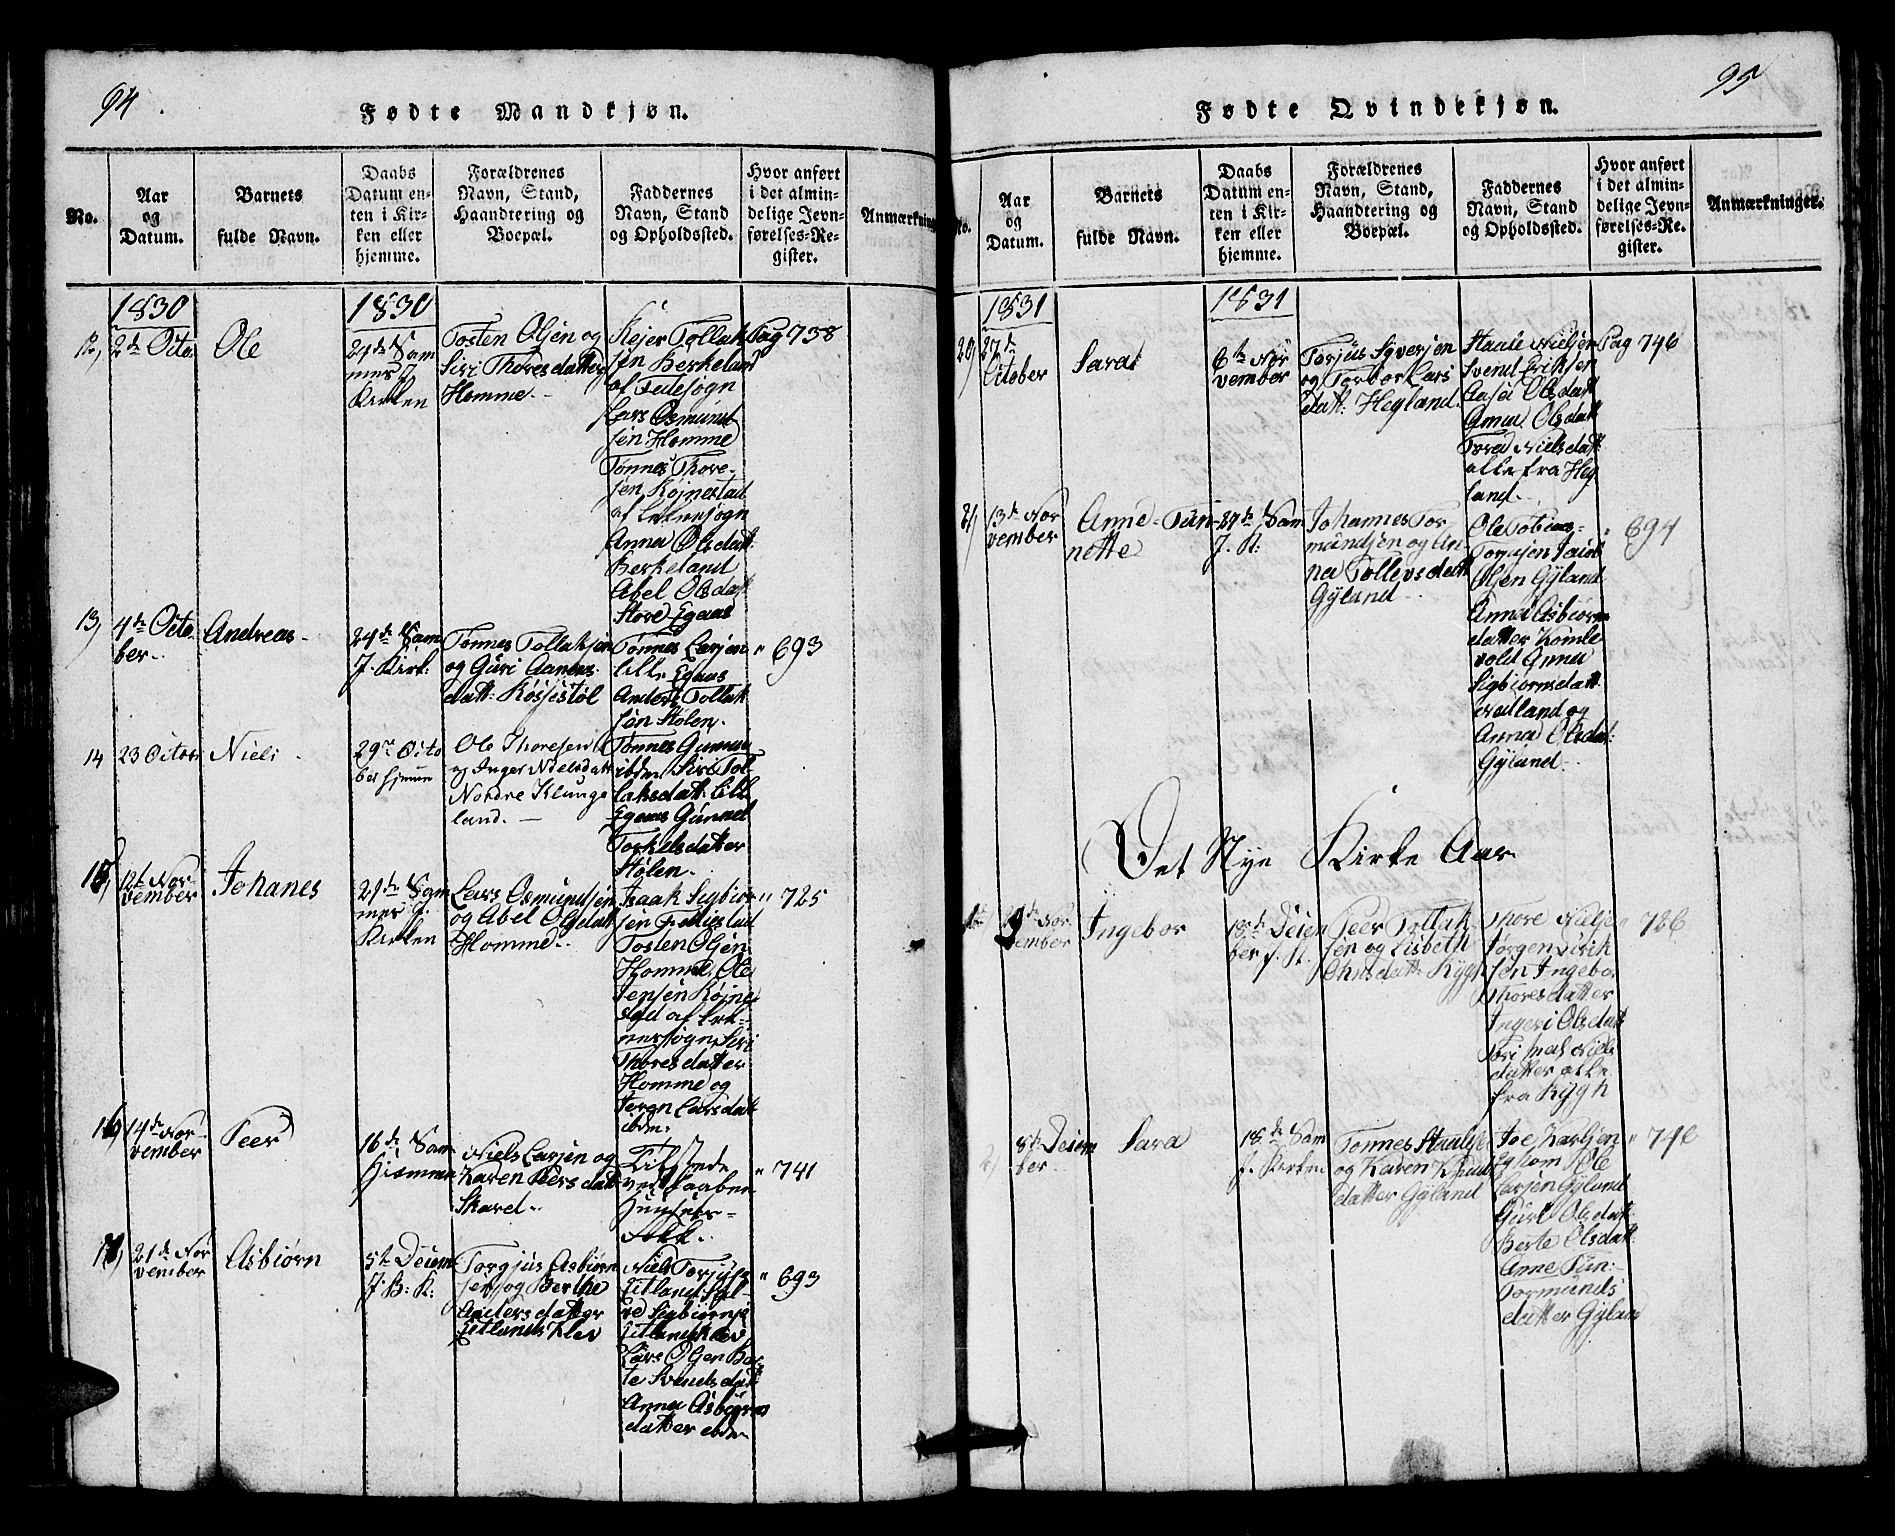 94.
Fødte Mandkjøn.
No.
Aar
og
Datum.
Barnets
fulde Navn.
Daabs
Datum en-
ten i Kir-
ken eller
hjemme.
Forældrenes
Navn, Stand,
Haandtering og
Boepæl.
Faddernes
Navn, Stand
og Opholdssted.
Hvor anført
i det almin-
delige Jevn-
førelses-Re-
gister.
Anmærkning
1830
1830
12,
2de Octo
Ole
21de Sam
mes J.
Kirken
Tosten Olsen og
Siri Thoresdatter
Homme.
Rejer Tollak
sen Berkeland
af Fedesogn
Lars Osmund
sen Homme
Tønnes Thore-
sen Røjnestad
af
Anna Olsdatt:
Berkeland
Abel Olsdatt
Store Egaas
Pag 738
13,
4de Octo
ber
Andreas
24de Sam
J. Kirk:
Tønnes Tollaksen
og Guri Aanens
datt: Røsjstøl
Tønnes Larsen
lille Egaas
Anders Tollak
sen Stølen.
" 693
14
23 Octob
Niels
29de Octo
ber hjemme
Ole Thoresen
og Inger Nielsdatt
Nordre Klunge
land.
Tønnes Gunnu
ibdm Siri Tol-
laksdatt: lille
Egaas Gunnel
Torkelsdatter
Stølen.
15,
12te Nov
vember
Johanes
21de Sam
mes J.
Kirken
Lars Osmundsen
og Abel Olsdatt
Homme.
Isaak Sigbiør
sen
Tosten Olsen
Homme, Ole
Jensen Røjne
stad af
sogn, Siri
Thoresdatter
Homme og
Larsdatt
ebdm.
" 725
16,
14de Nov
vember
Peer
16de Sam
Hiemme
Niels Larsen og
Karen Peersdatt
Skared
Tilstede
ved Daaben
" 741
17,
21de Nov
vember
Asbiørn
5te Decem
J. B: K:
Torgjus Asbiørn
sen og Berthe
Andersdatter
Eitlands Klev
Niels Torjus
Eitland,
Sigbiørns
Eitlandsklev
Lars Olsen Ber-
te Svendsdatt
Anna Asbiørns
datter ebdm
" 693
95
Fødte Qvindekjøn.
No.
Aar
og
Datum.
Barnets
fulde Navn.
Daabs
Datum en-
ten i Kir-
ken eller
hjemme.
Forældrenes
Navn, Stand,
Haandtering og
Boepæl.
Faddernes
Navn, Stand
og Opholdssted.
Hvor anført
i det almin-
delige Jevn-
førelses-Re-
gister.
Anmærkninger.
1831
1831
20,
27de
October
Sara
6te Nov
vember
Torjus Syversen
og Torbor Lars
datt: Hegland.
Staale Nielsen
Svend Eriksen
Aasa Olsdatt
Anna Olsdatt
Tored Nielsdatt
alle fra Heg
land.
Pag 746
21,
13de Nov
vember
Anne Tun-
nette
27de Sam
J. K:
Johannes Tor
mundsen og An-
na Tollevsdatt
Gyland
Ole Tobias-
Tomasen
Olsen Gyland
Anna Asbiørns
datter
vold Anna
Sigbiørnsdatt
og
Anna Olsdat:
Gyland
" 694
Det Nye Kirke Aar
Nov
vember
Ingebor
18de Decem
ber J. K.
Peer Tollak
sen og Lisbeth
datt Rygh
Thore Nielsen
Jørgen Erik
sen Ingebor
Thoresdatter
Ingeri Olsdatt
Niels
datter alle
fra Rygh
" 726
2,
8de Decem
ber
Sara
18de Sam
J. Kirken
Tønnes Staalese
og Karen Knud
datter Gyland
Joe Karlsen
Ole
Larsen Gyland
Guri Olsdatt
Berte Olsdatt
Anne Tun:
Tormunds
datter Gyland
" 746